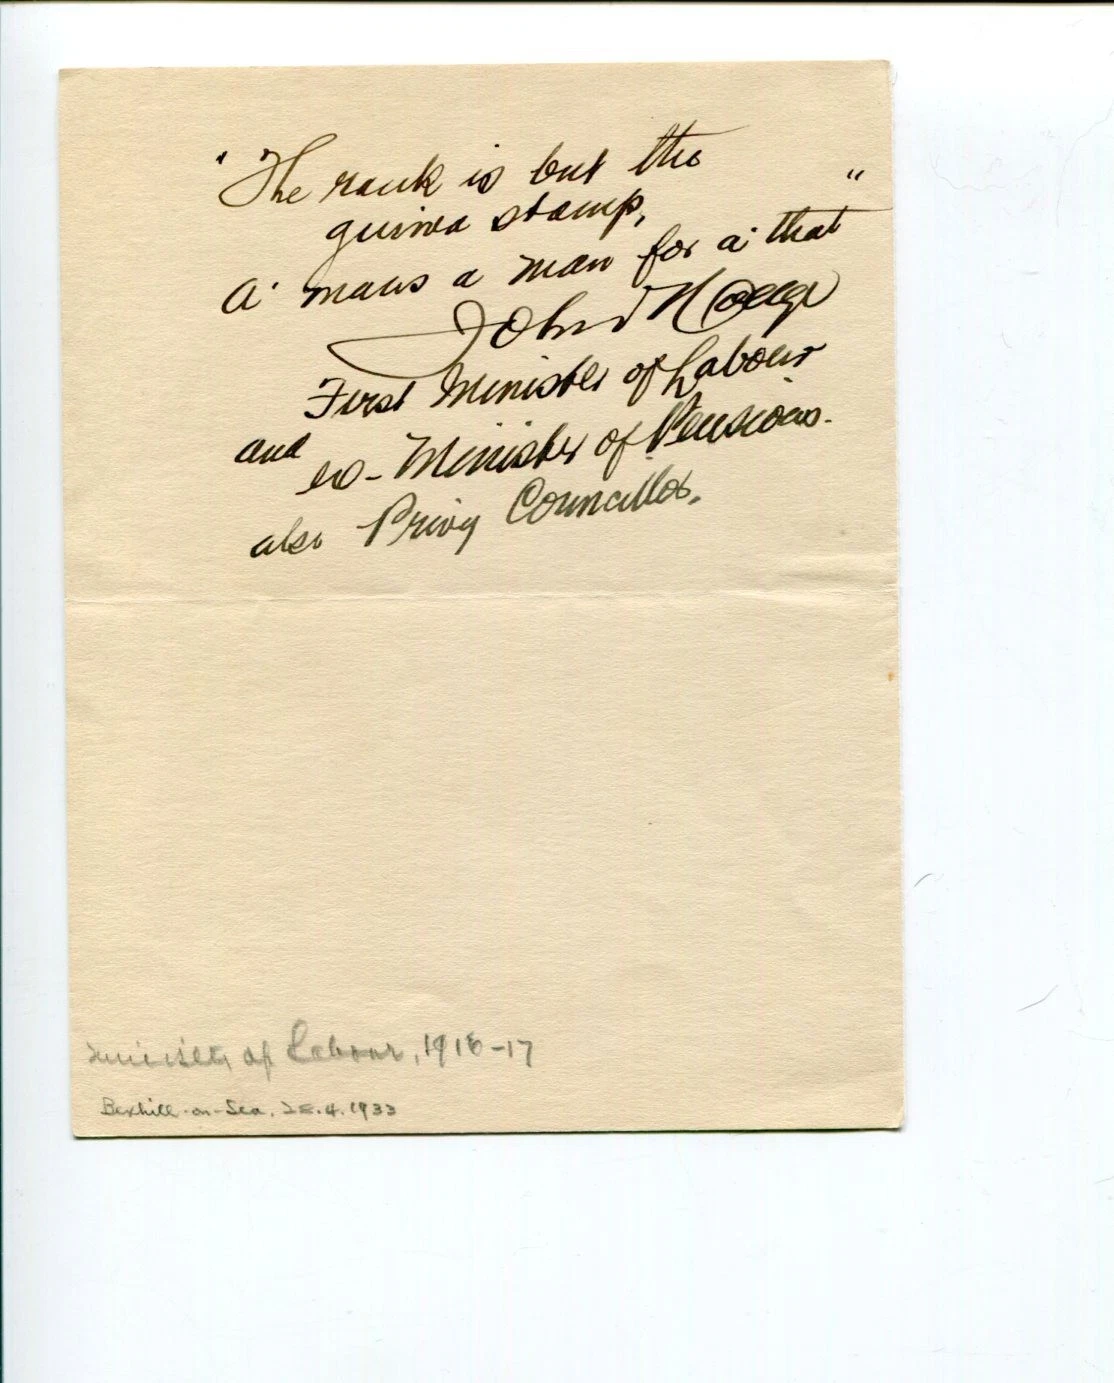 "The rank is but the
guinea stamp,
A' mans a man for a' that"
John Hodge
First Minister of Labour
and
ex-Minister of Pensions.
also Privy Councillor.
Minister of Labour, 1916-17
Bexhill-on-Sea, 4.1933